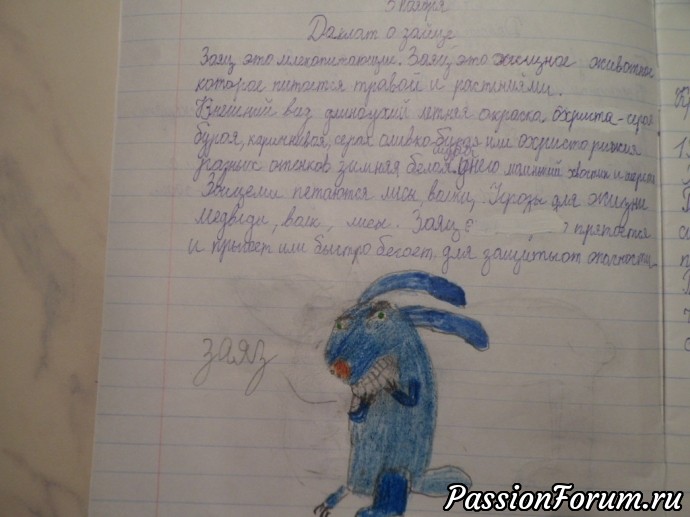 5 ноября
Даклат о зайце
Заяц это млекопитающие. Заяц это хищное животное
которое питается травой и растиниями.
Внешний вид длиноухий летняя окраска охриста-серая
бурая, каричнивая, серая оливко-бурая или охристо рыжия
разних отенков зимняя белая. унего маленький хвостик и шерсть
Зайцеми петаются лисы, волки, Угрозы для жизни
медведи, волк, лисы. Заяц прячется
и прыгает или быстро бегает для защиты от опасности
заяз
PassionForum.ru